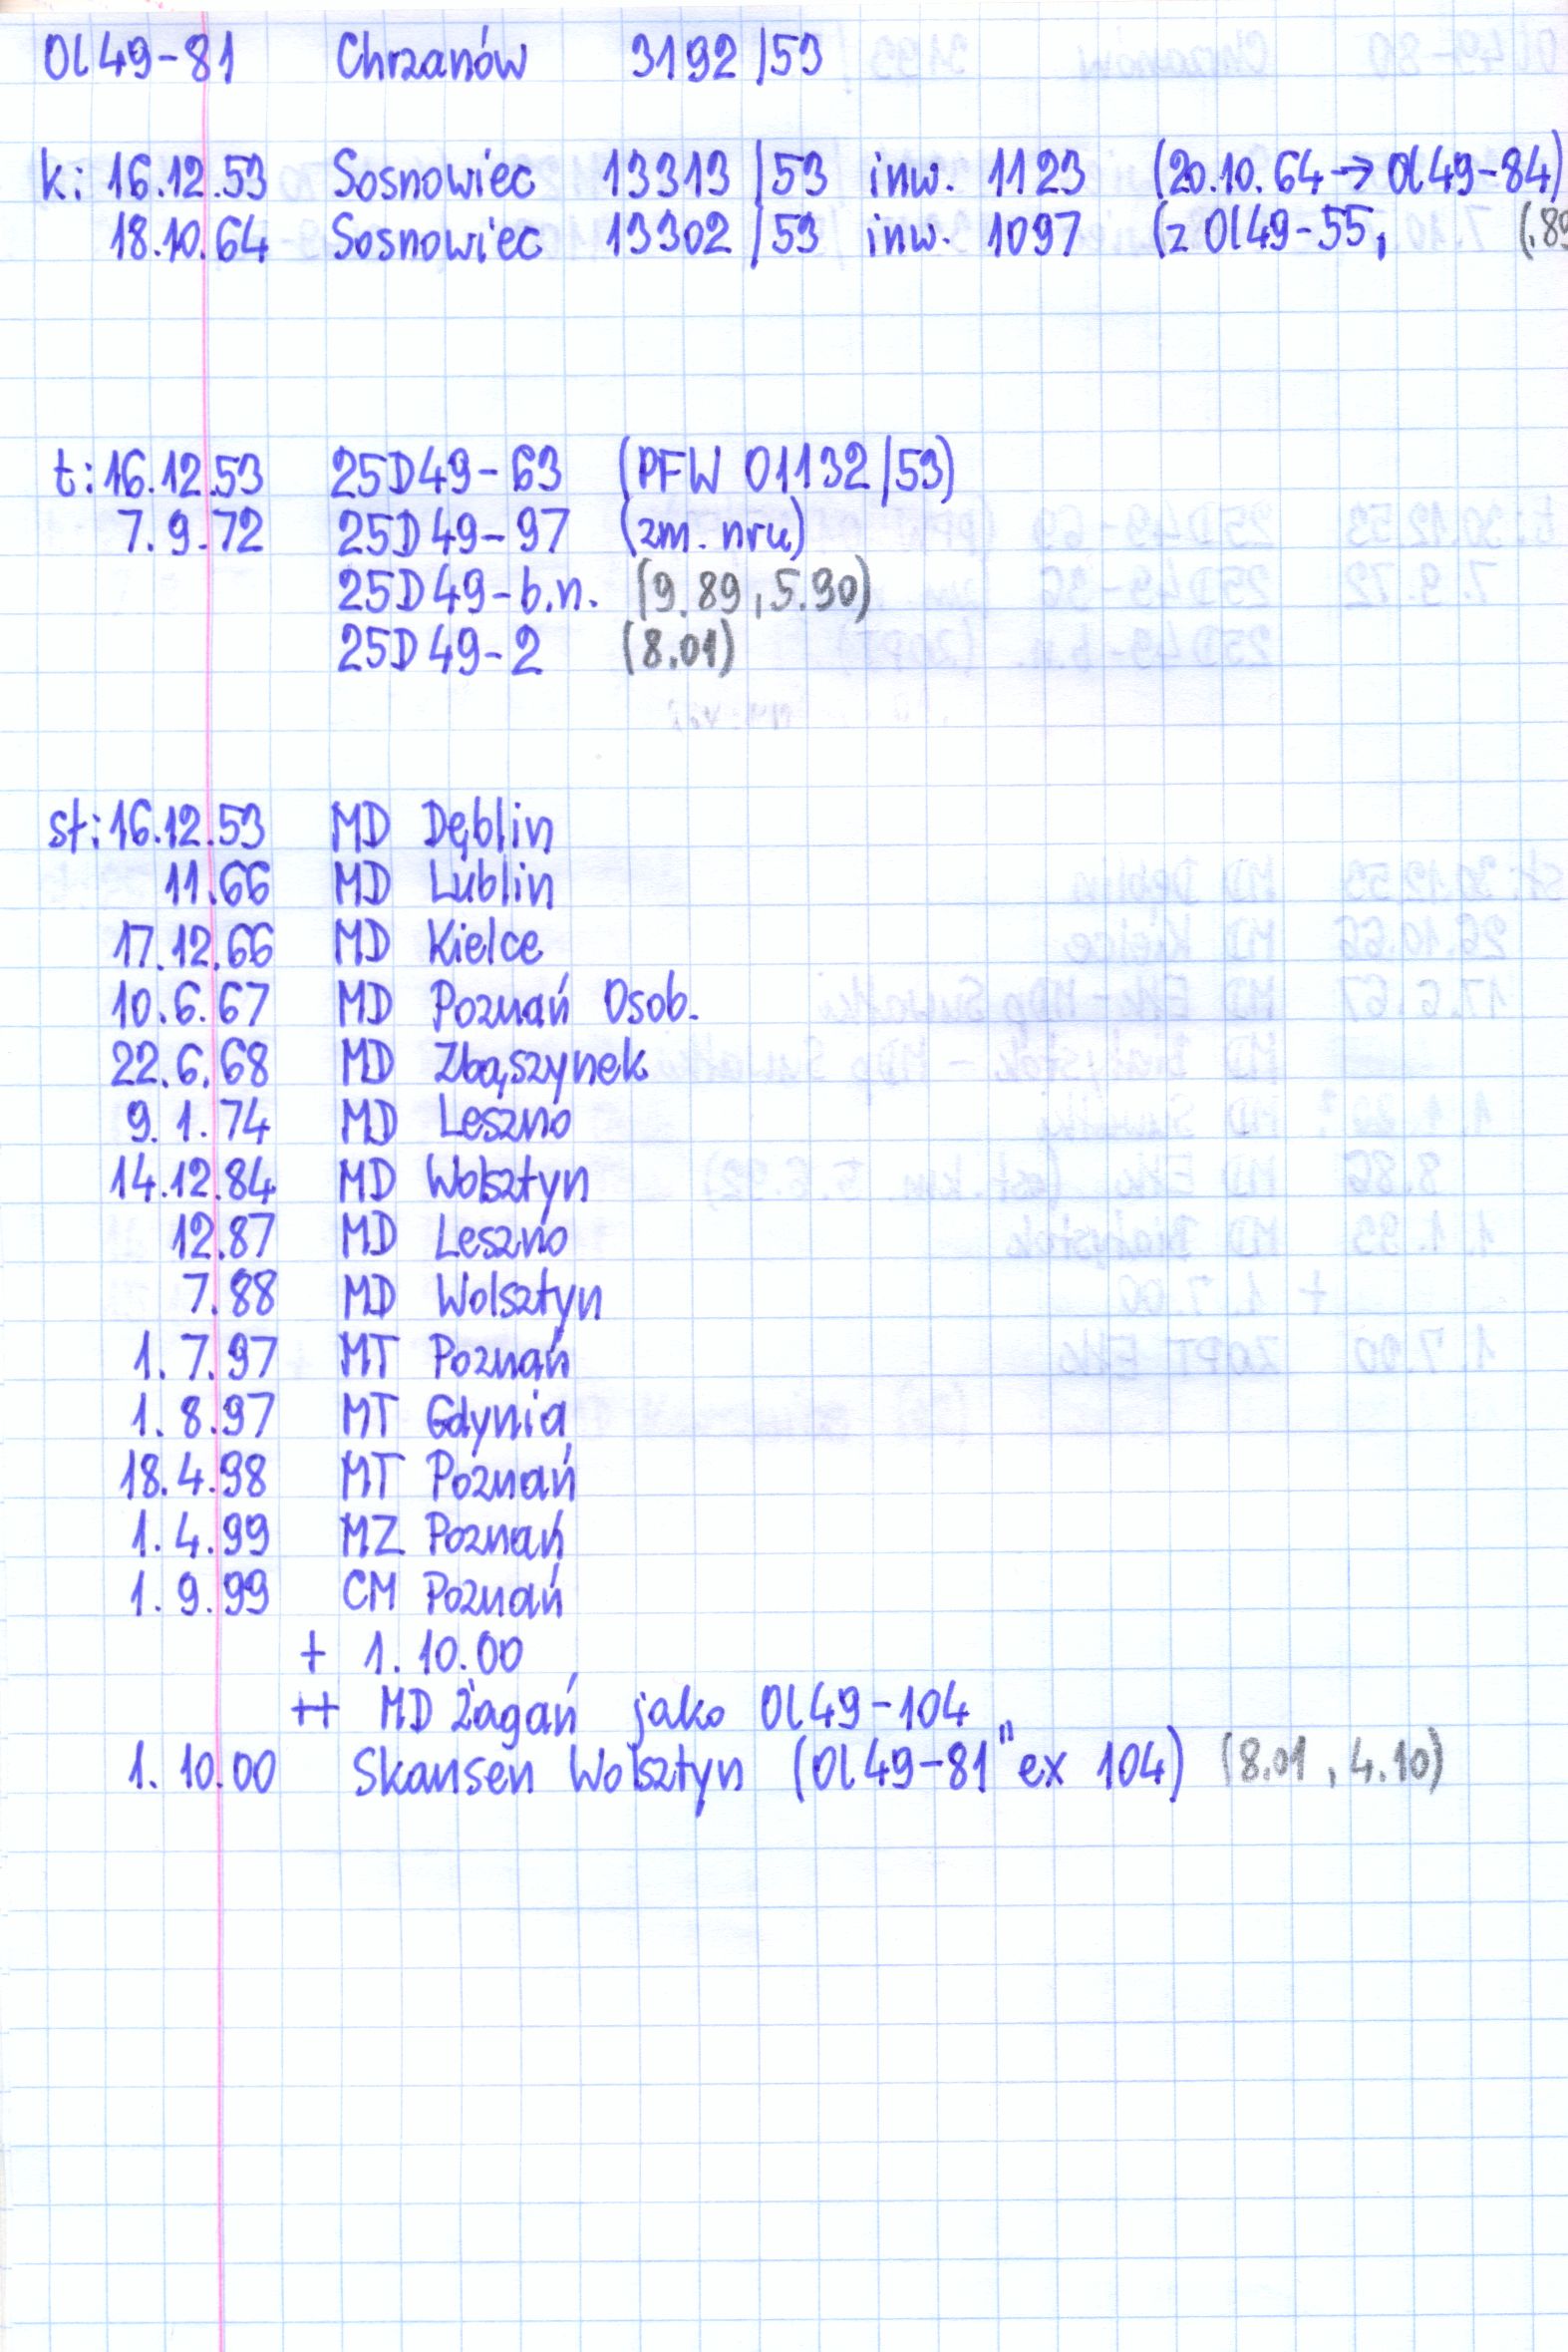 Ol49-81 Chrzanów 3192/53
k: 16.12.53 Sosnowiec 13313/53 inw. 1123 (20.10.64→Ol49-84)
18.10.64 Sosnowiec 13302/53 inw. 1097 (z Ol49-55, (.89
t: 16.12.53 25D49-63 (PFW 01132/53)
7.9.72 25D49-97 (zm. nru)
25D49-b.n. (9.89, 5.90)
25D49-2 (8.01)
st: 16.12.53 MD Dęblin
11.66 MD Lublin
17.12.66 MD Kielce
10.6.67 MD Poznań Osob.
22.6.68 MD Zbąszynek
9.1.74 MD Leszno
14.12.84 MD Wolsztyn
12.87 MD Leszno
7.88 MD Wolsztyn
1.7.97 MT Poznań
1.8.97 MT Gdynia
18.4.98 MT Poznań
1.4.99 MZ Poznań
1.9.99 CM Poznań
+ 1.10.00
++ MD Żagań jako Ol49-104
1.10.00 Skansen Wolsztyn (Ol49-81" ex 104) (8.01, 4.10)